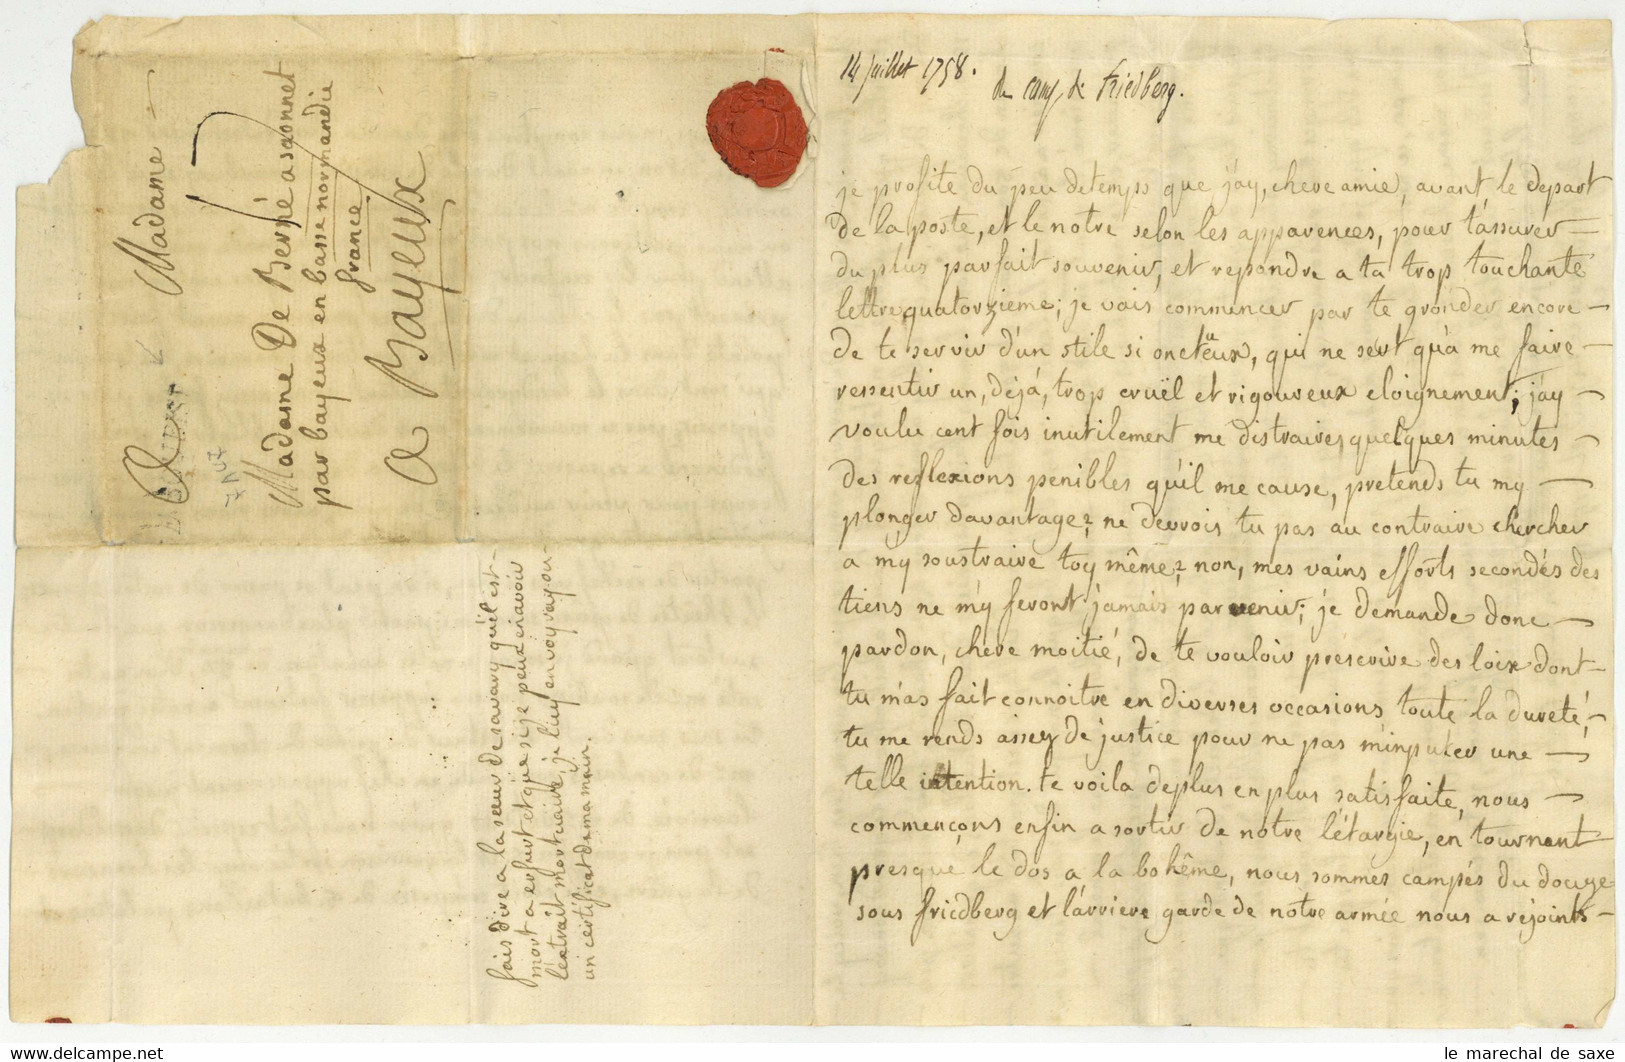 14 juillet 1758.
du camp de Friedberg.
je profite du peu detemps que j'ay, chere amie, avant le depart
de la poste, et le notre selon les apparences, pour t'assurer
du plus parfait souvenir, et repondre a ta trop touchante
lettre quatorzieme; je vais commencer par te gronder encore
de te servir d'un stile si onctëux, qui ne sert qu'a me faire
ressentir un, déjá, trop cruël et rigoureux eloignement; j'ay
voulu cent fois inutilement me distraire, quelques minutes
des reflexions penibles qu'il me cause, pretends tu my
plonger davantage? ne devrois tu pas au contraire chercher
a my soustraire toy même? non, mes vains efforts secondés des
tiens ne m'y feront jamais parvenir; je demande donc
pardon, chere moitié, de te vouloir prescrire des loix dont
tu m'as fait connoitre en diverses occasions toute la dureté,
tu me rends assez de justice pour ne pas m'inputer une
telle intention. te voila deplus en plus satisfaite, nous
commençons enfin a sortir de notre létargie, en tournant
presque le dos a la bohême, nous sommes campés du douze
sous friedberg et l'arriere garde de notre armée nous a rejoints
Madame
Madame De Berné a saonnet
par bayeux en basse normandie
france
a Bayeux
fais dire a la sœur de savary qu'il est
mort a erfurt et que si je peux en avoir
l'extrait mortuaire, je luy envoyray ou
un certificat de ma main.
le marechal de saxe